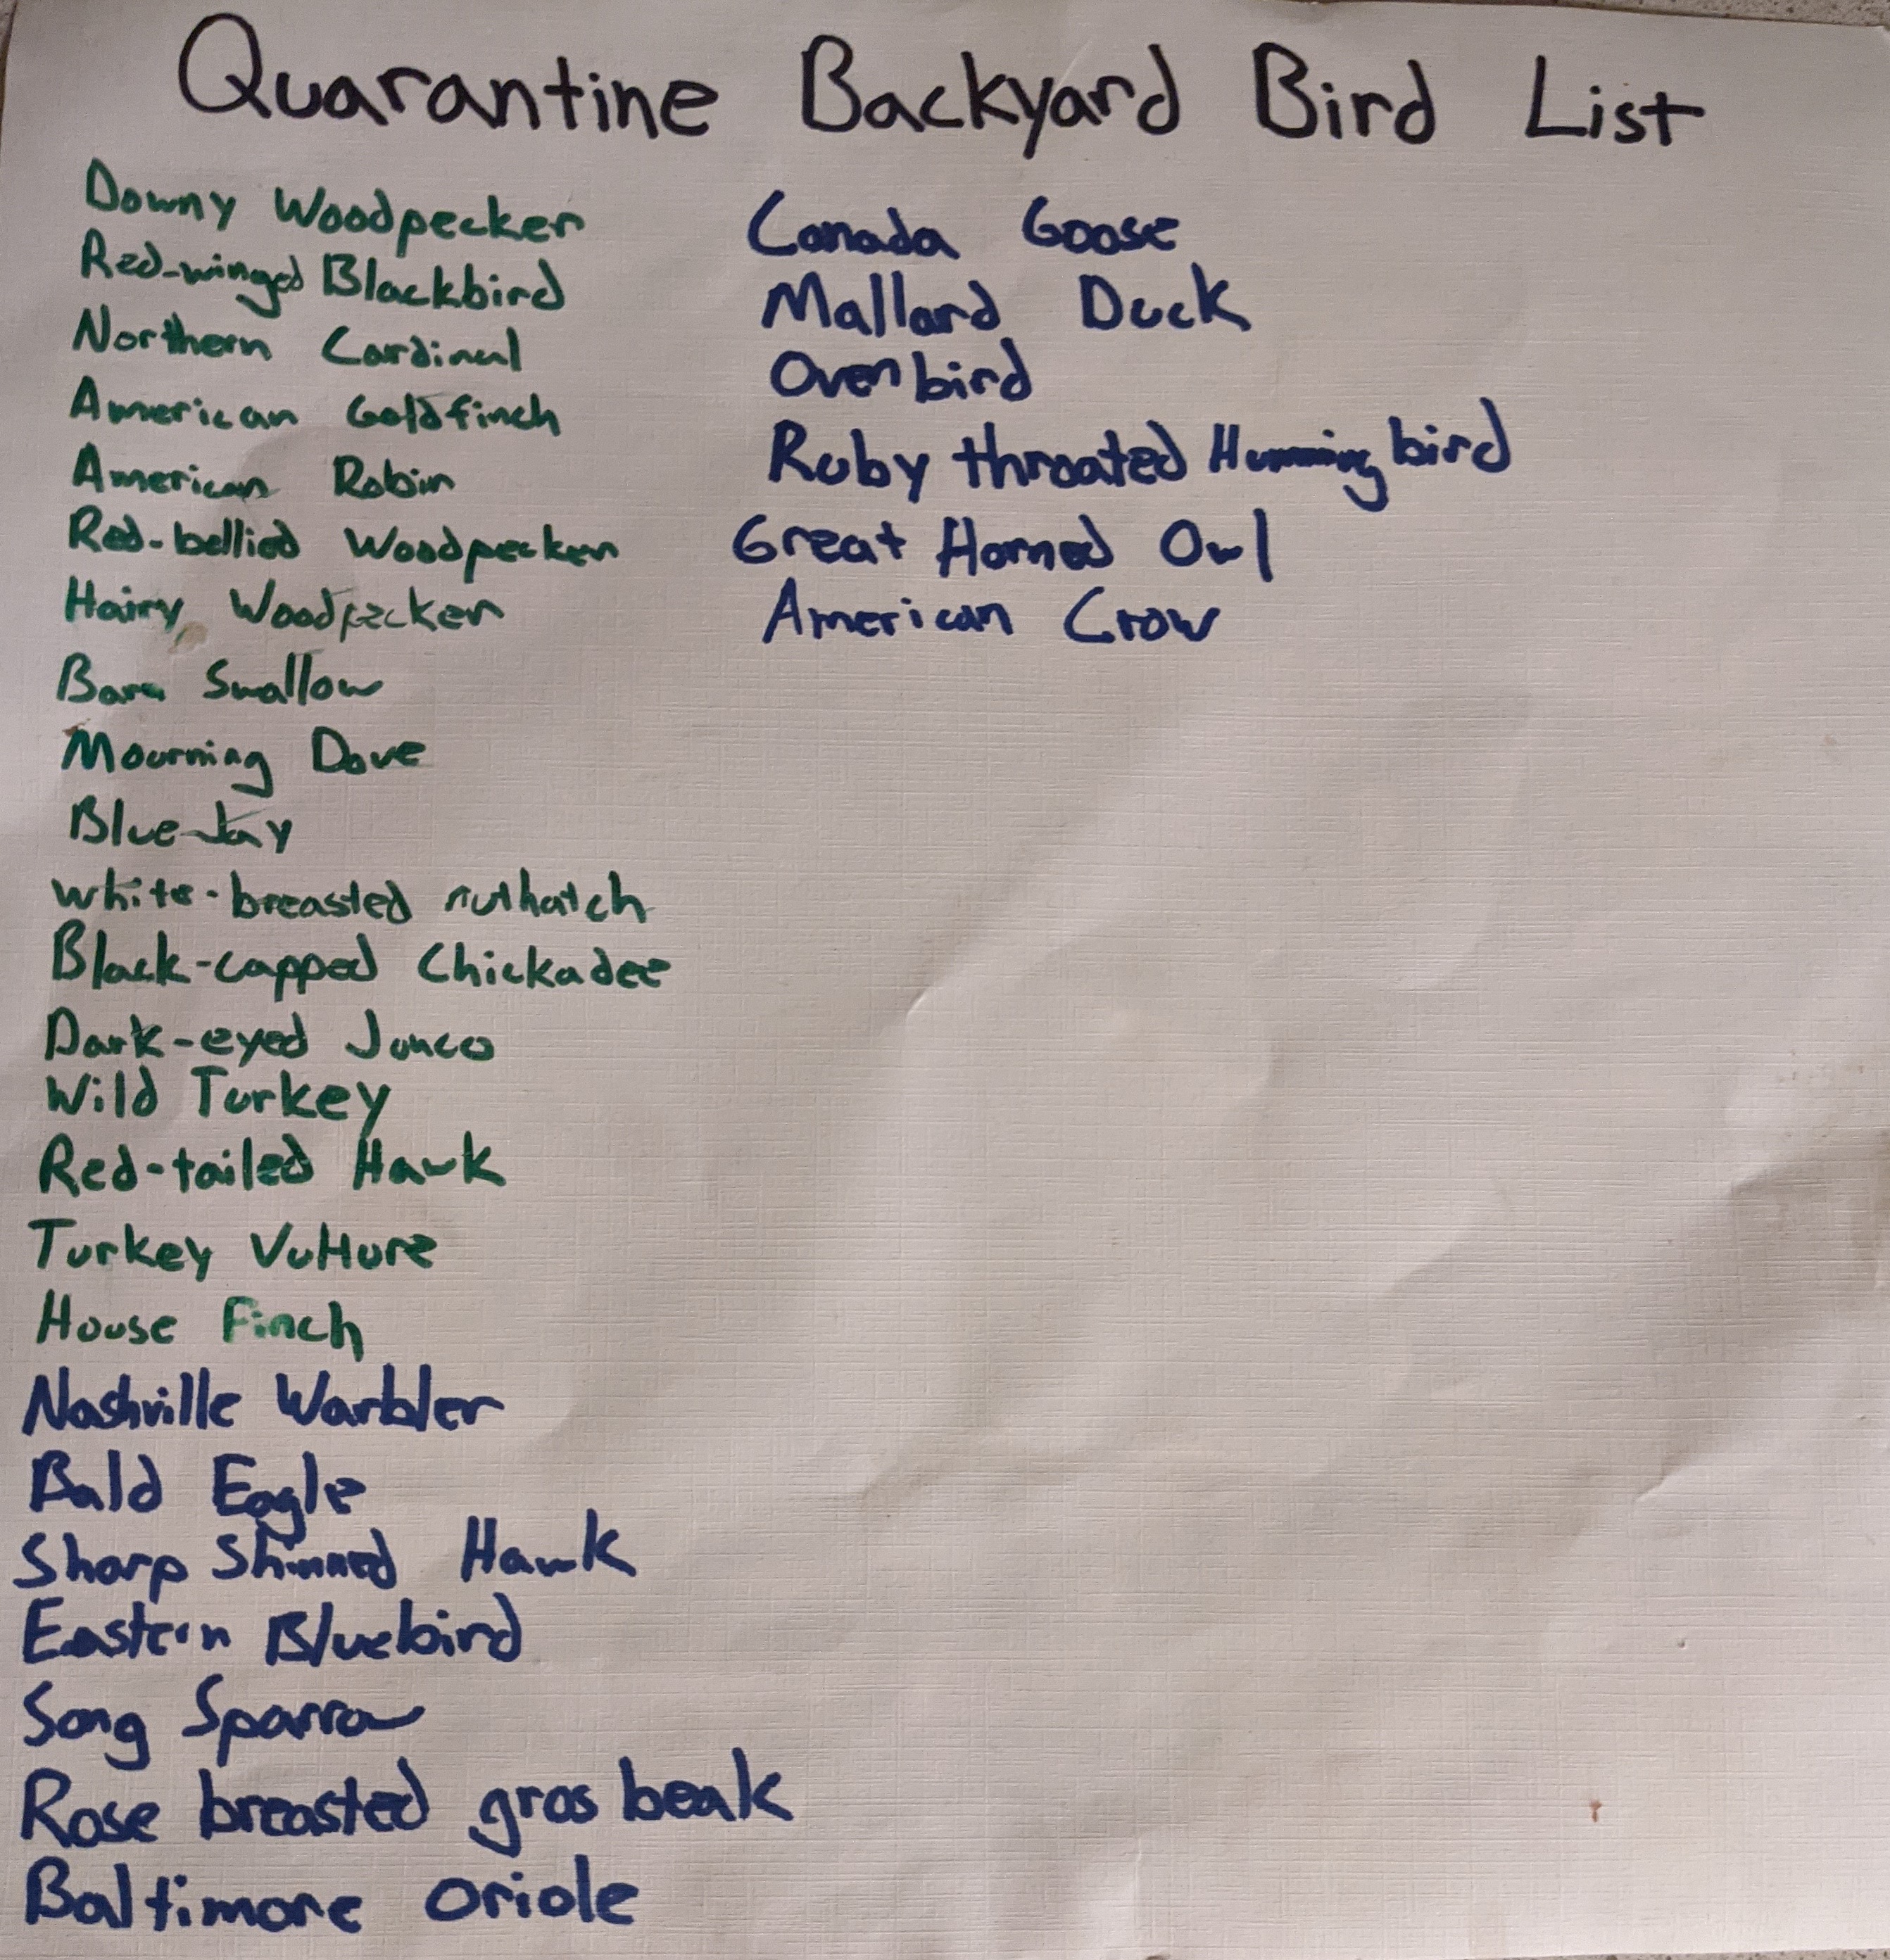 Quarantine Backyard Bird List
Downy Woodpecker
Red-winged Blackbird
Northern Cardinal
American Goldfinch
American Robin
Red-bellied Woodpecker
Hairy Woodpecker
Barn Swallow
Mourning Dove
Blue Jay
White-breasted nuthatch
Black-capped Chickadee
Dark-eyed Junco
Wild Turkey
Red-tailed Hawk
Turkey Vulture
House Finch
Nashville Warbler
Bald Eagle
Sharp Shinned Hawk
Eastern Bluebird
Song Sparrow
Rose breasted gros beak
Baltimore Oriole
Canada Goose
Mallard Duck
Ovenbird
Ruby throated Hummingbird
Great Horned Owl
American Crow